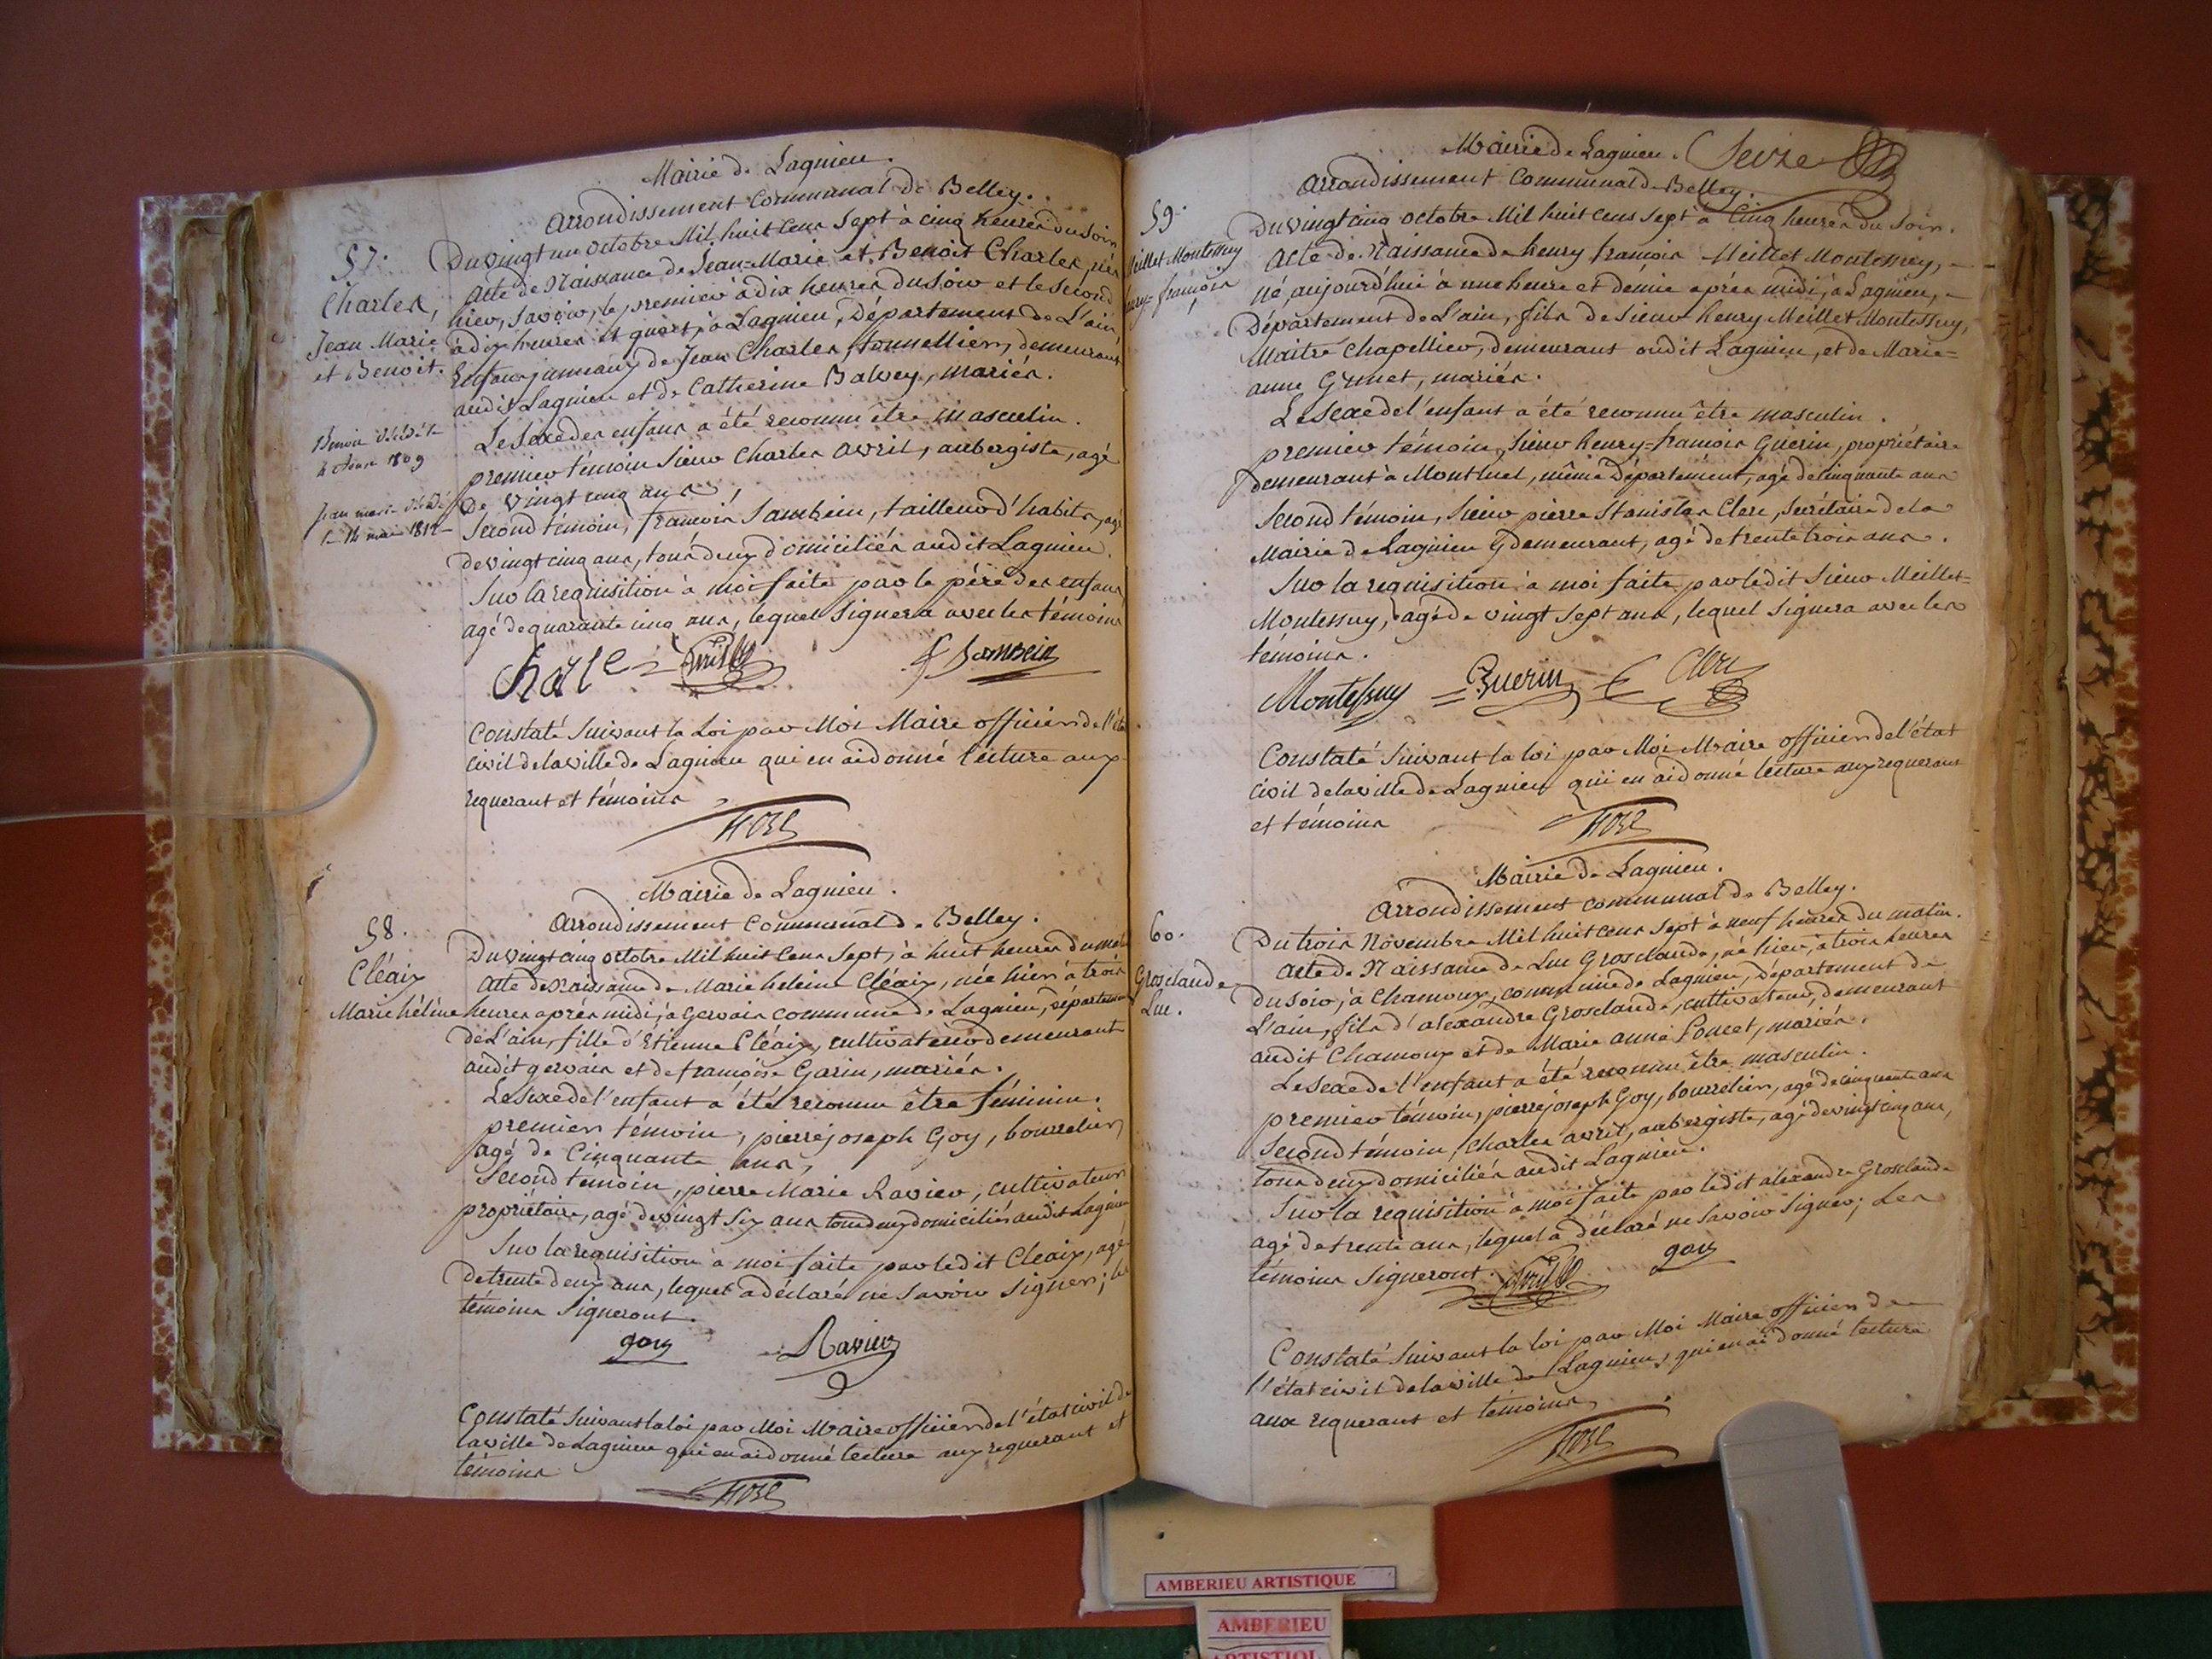 Mairie de Lagnieu.
Arrondissement Communal de Belley.
57.
Charles,
Jean Marie
et Benoit.
Du vingt un octobre Mil huit cens sept à cinq heures du soir
Acte de Naissance de Jean=Marie et Benoit Charles, nés
hier, savoir, le premier à dix heures du soir et le second
à dix heures et quart, à Lagnieu, Département de L'ain,
Enfans jumeaux de Jean Charles, tonnellier, demeurant
audit Lagnieu et de Catherine Balvey, mariés.
Le Sexe des enfans a été reconnu être masculin.
1809
premier témoin Sieur Charles avril, aubergiste, agé
de vingt cinq ans,
Second témoin, françois Sambein, tailleur d'habits, agé
de vingt cinq ans, tous deux domiciliés audit Lagnieu.
Sur la requisition à moi faite par le père des enfans
agé de quarante cinq ans, lequel signera avec les témoins
Charle Avril Sambein
Constaté Suivant la Loi par Moi Maire officier de l'état
civil de la ville de Lagnieu qui en ai donné lecture aux
requerant et témoins
Mairie de Lagnieu.
Arrondissement Communal de Belley.
58.
Cléaix
Marie hélène
Du vingt cinq octobre Mil huit cens sept, à huit heures du
Acte de Naissance de Marie heleine Cléaix, née hier à trois
heures après midi, à Gervais commune de Lagnieu, département
de L'ain, fille d'Etienne Cléaix, cultivateur demeurant
audit gervais et de françoise Garin, mariés.
Le sexe de l'enfant a été reconnu être féminin.
premier témoin, pierre joseph Goy, bourrelier,
agé de Cinquante ans,
Second témoin, pierre Marie Ravier, cultivateur
propriétaire, agé de vingt six ans tous deux domiciliés audit Lagnieu
Sur la requisition à moi faite par ledit Cléaix, agé
de trente deux ans, lequel a déclaré ne savoir signer; les
témoins Signeront.
goy Ravier
Constaté Suivant la loi par Moi Maire officier de l'état civil de
la ville de Lagnieu qui en ai donné lecture aux requerant et
témoins
Mairie de Lagnieu. Seize
Arrondissement Communal de Belley.
59.
Meillet Montessuy
henry=françois
Du vingt cinq octobre Mil huit cens sept à Cinq heures du Soir.
Acte de Naissance de henry françois Meillet Montessuy,
né aujourd'hui à une heure et demie après midi, à Lagnieu,
Département de L'ain, fils de Sieur henry Meillet Montessuy,
Maitre Chapellier, demeurant audit Lagnieu, et de Marie=
anne Gunet, mariés.
Le Sexe de l'enfant a été reconnu être masculin.
premier témoin, Sieur henry=françois Guerin, propriétaire
demeurant à Montluel, même Département, agé de cinquante ans
Second témoin, Sieur pierre Stanislas Clerc, Secrétaire de la
Mairie de Lagnieu y demeurant, agé de trente trois ans.
Sur la requisition à moi faite par ledit Sieur Meillet=
Montessuy, agé de vingt sept ans, lequel signera avec les
témoins.
Montessuy Guerin Clerc
Constaté Suivant la loi par Moi Maire officier de l'état
civil de la ville de Lagnieu qui en ai donné lecture aux requerant
et témoins
Mairie de Lagnieu.
Arrondissement communal de Belley.
60.
Grosclaude
Luc.
Du trois Novembre Mil huit cens sept à neuf heures du matin.
Acte de Naissance de Luc Grosclaude, né hier, à trois heures
du soir, à Chamoux, commune de Lagnieu, Département de
L'ain, fils d'alexandre Grosclaude, cultivateur, demeurant
audit Chamoux et de Marie anne Poncet, mariés.
Le sexe de l'enfant a été reconnu être masculin.
premier témoin, pierre joseph Goy, bourrelier, agé de cinquante ans
Second témoin, Charles avril, aubergiste, agé de vingt cinq ans,
tous deux domiciliés audit Lagnieu.
Sur la requisition à moi faite par ledit alexandre Grosclaude
agé de trente ans, lequel a déclaré ne savoir signer; Les
témoins Signeront. Avril goy
Constaté Suivant la loi par Moi Maire officier de
l'état civil de la ville de Lagnieu, qui en ai donné lecture
aux requerant et témoins,
AMBERIEU ARTISTIQUE
AMBERIEU
ARTISTIQUE